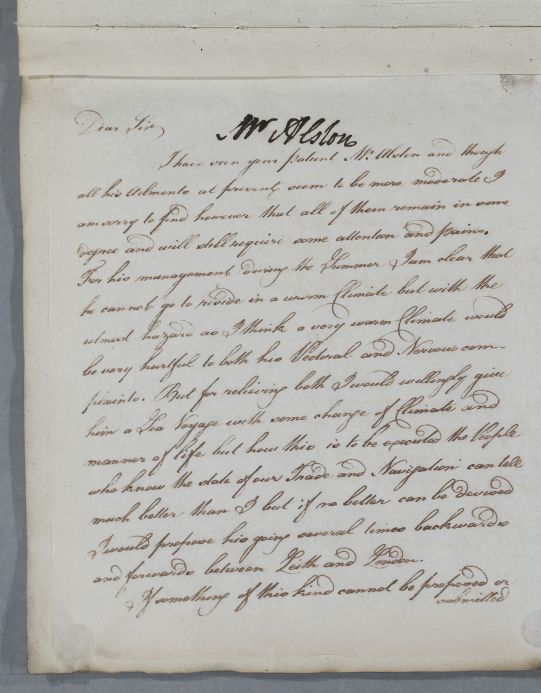 Dear Sir,
Mr Alston
I have seen your patient Mr. Alston and though
all his Ailments at present seem to be more moderate I
am sorry to find however that all of them remain in some
degree and will still require some attention and pains.
For his management during the Summer I am clear that
he cannot go to reside in a warm Climate but with the
utmost hazard as I think a very warm Climate would
be very hurtful to both his Pectoral and Nervous com-
plaints. But for relieving both I would willingly give
him a Sea Voyage with some change of Climate and
manner of life but how this is to be executed the People
who know the state of our Trade and Navigation can tell
much better than I but if no better can be devised
I would propose his going several times backwards
and forwards between Leith and London.
If something of this kind cannot be proposed or
submitted